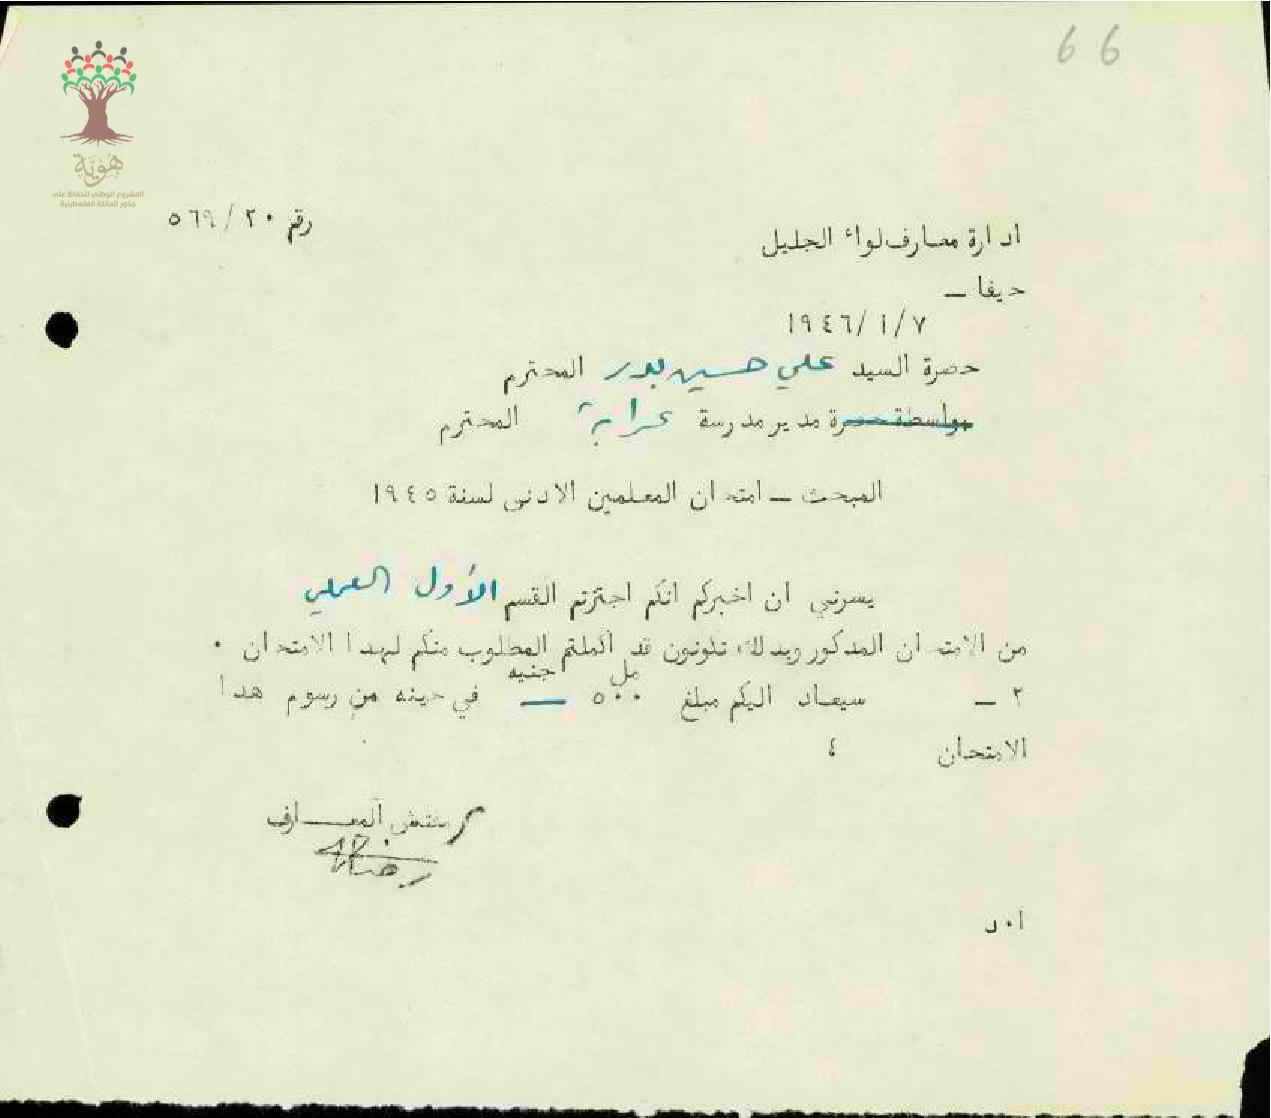 66
هُوِيَّة
المشروع الوطني للحفاظ على
جذور العائلة الفلسطينية
رقم ٥٦٩/٢٠
ادارة معارف لواء الجليل
حيفا –
١٩٤٦/١/٧
حضرة السيد علي حسين بدر المحترم
بواسطة حضرة مدير مدرسة عرابة المحترم
المبحث – امتحان المعلمين الادنى لسنة ١٩٤٥
يسرني ان اخبركم انكم اجتزتم القسم الأول العملي
من الامتحان المذكور وبذلك تكونون قد اكملتم المطلوب منكم لهذا الامتحان ٠
٢ – سيعاد اليكم مبلغ مل ٥٠٠ جنيه — في حينه من رسوم هذا
الامتحان ٤
مفتش المعارف
ا٠ د